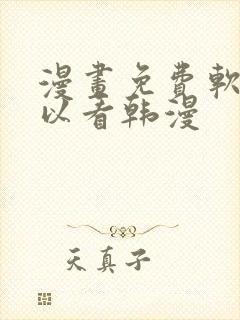 漫畫免費軟
以看韩漫
天真子